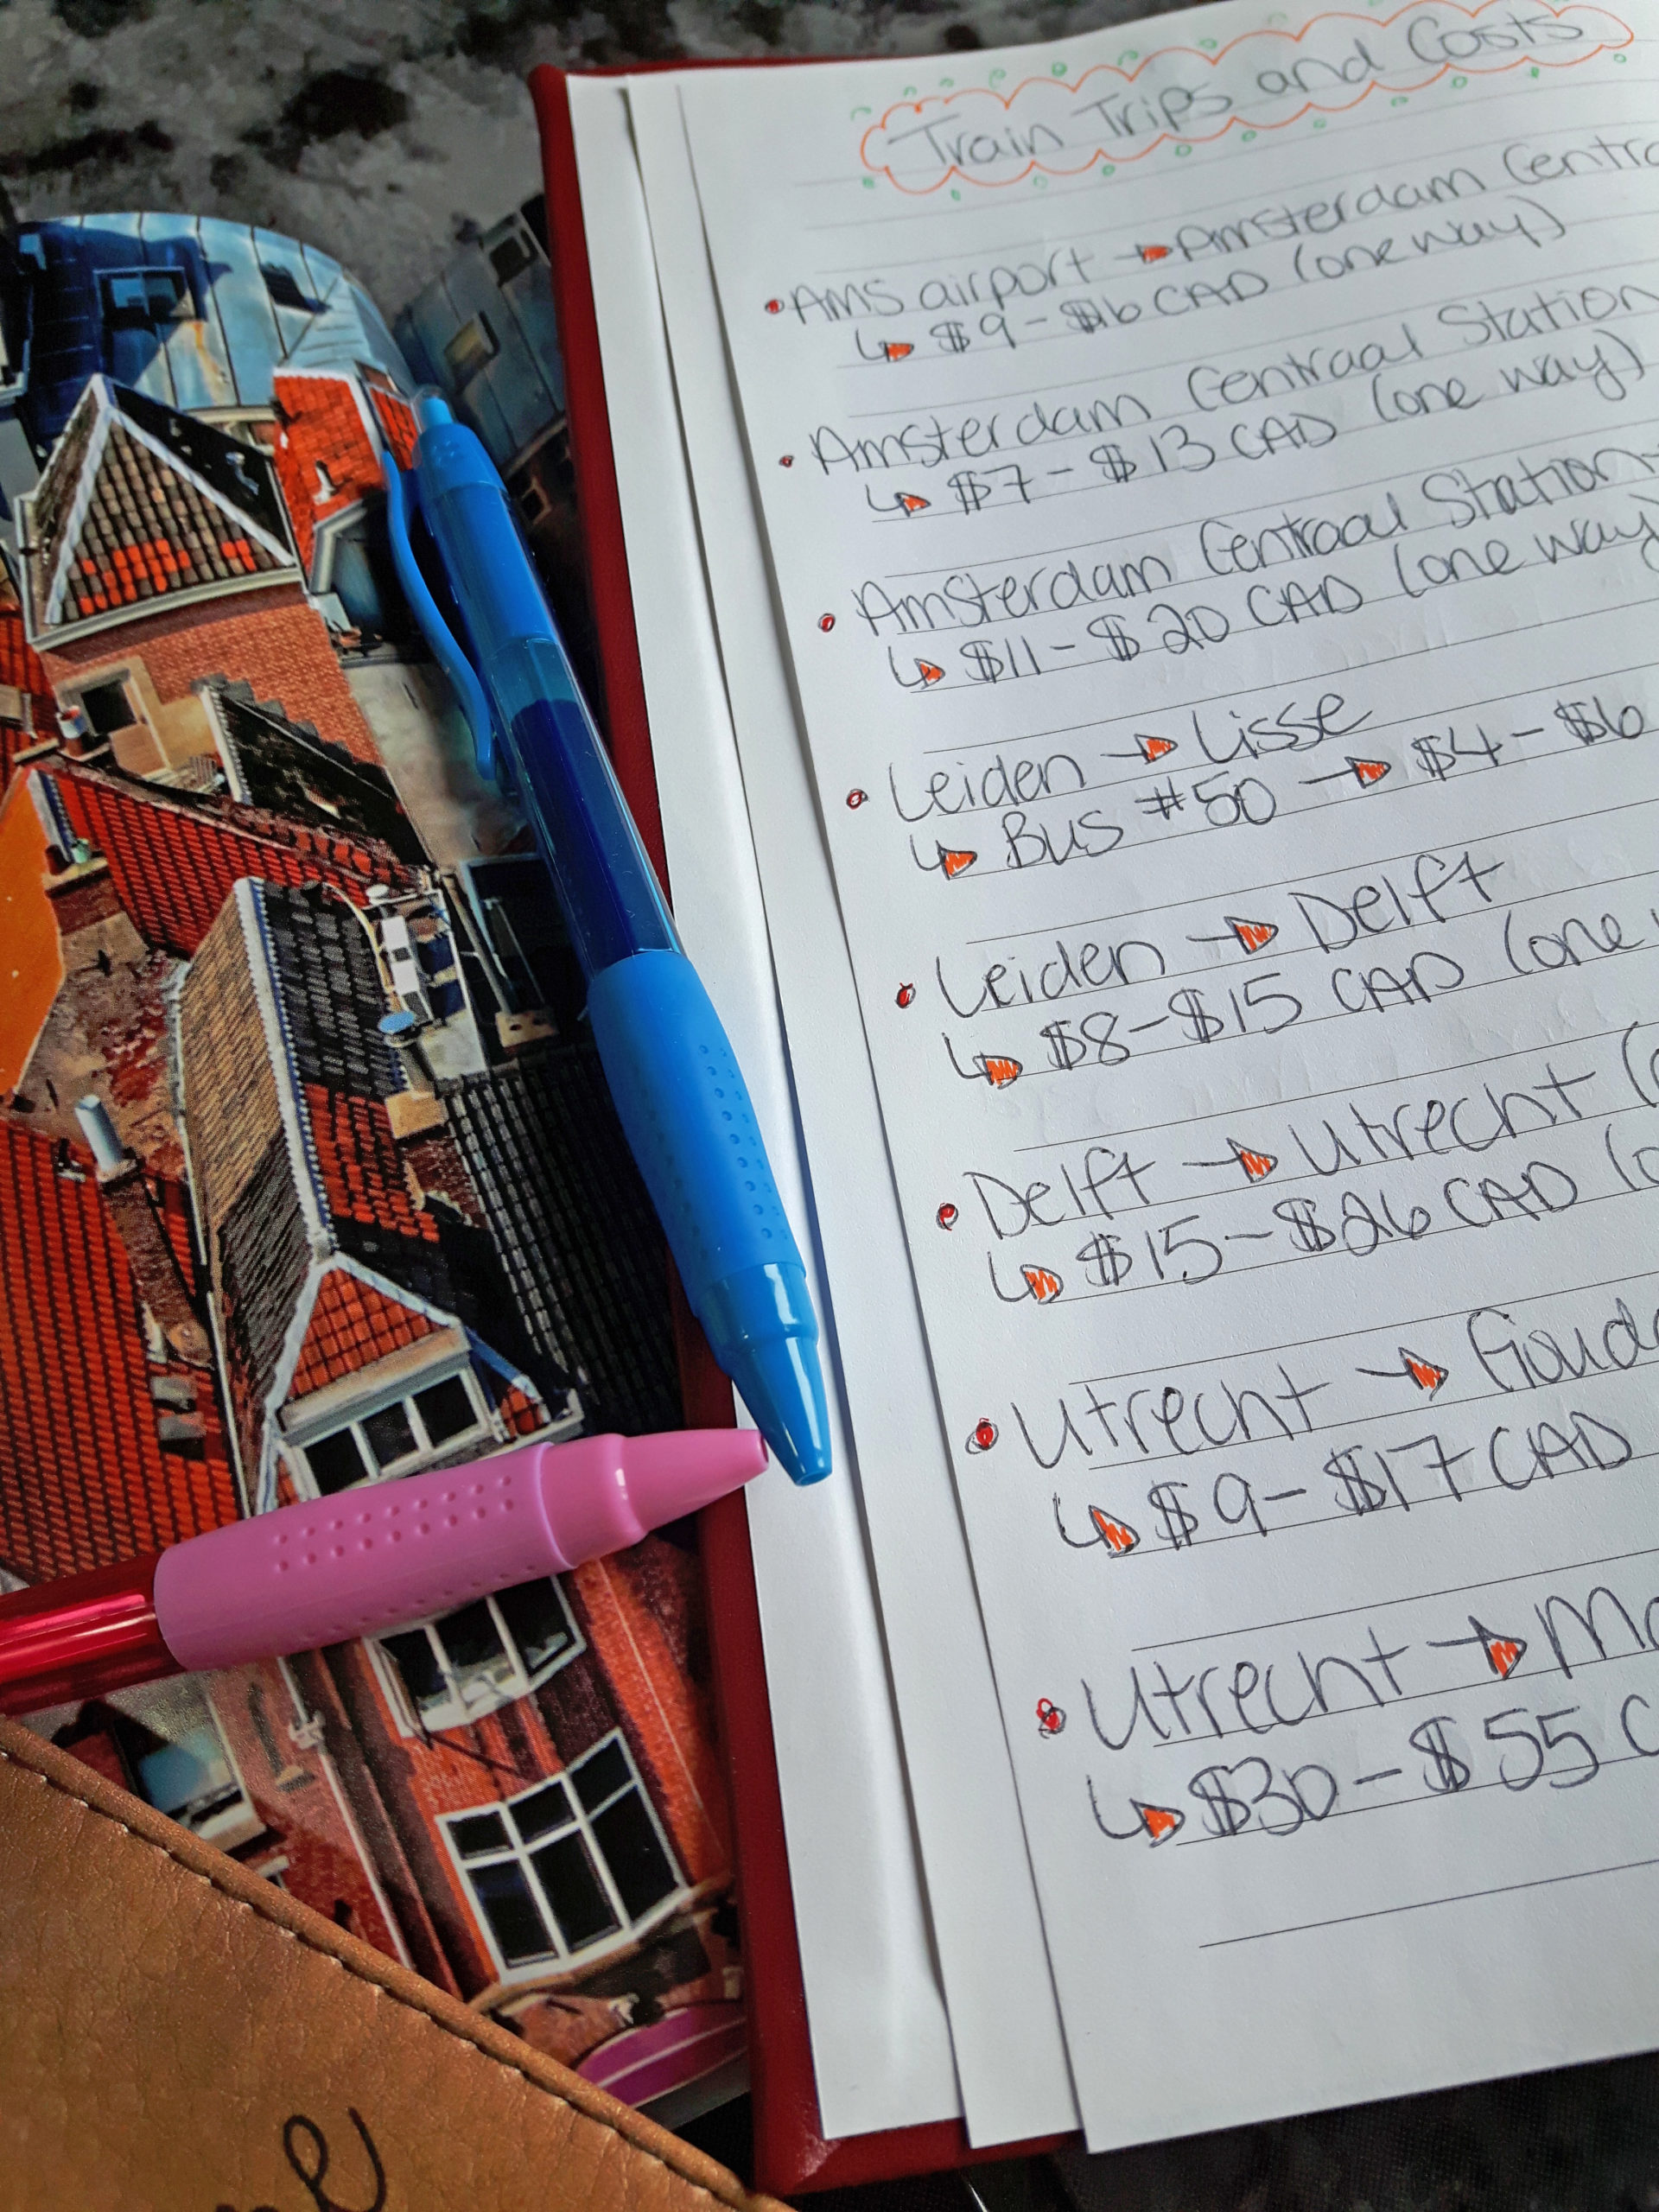 Train Trips and Costs
• AMS airport → Amsterdam Centra
↳ $9 - $16 CAD (one way)
• Amsterdam Centraal Station
↳ $7 - $13 CAD (one way)
• Amsterdam Centraal Station
↳ $11 - $20 CAD (one way)
• Leiden → Lisse
↳ Bus #50 → $4 - $6
• Leiden → Delft
↳ $8 - $15 CAD (one
• Delft → Utrecht (
↳ $15 - $26 CAD (
• Utrecht → Gouda
↳ $9 - $17 CAD
• Utrecht → Ma
↳ $30 - $55 C